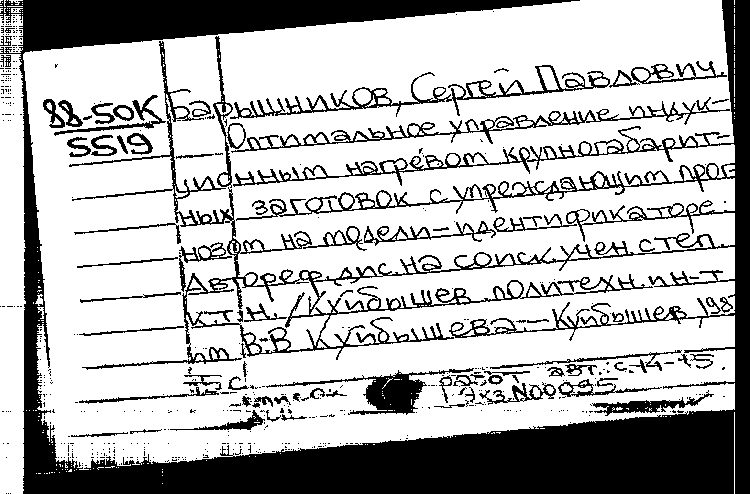 88-50К
5519
Барышников, Сергей Павлович.
Оптимальное управление индук-
ционным нагревом крупногабарит-
ных заготовок с упреждающим прог-
нозом на модели-идентификаторе:
Автореф. дис. на соиск. учен. степ.
к.т.н. / Куйбышев. политехн. ин-т
им. В.В Куйбышева. - Куйбышев 198
15 с
список работ авт.: с. 14-15.
1 экз. N00095